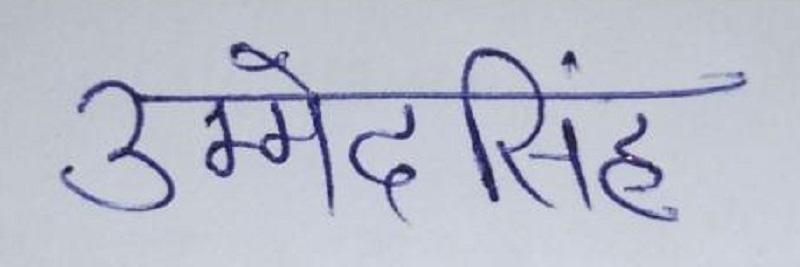 उम्मेद सिंह